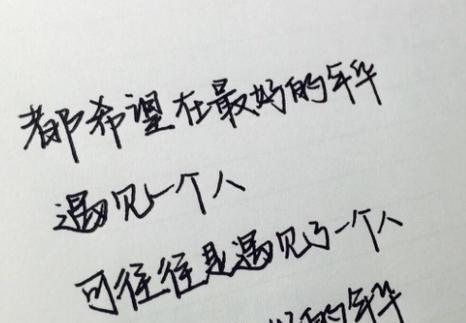 都希望在最好的年华
遇见一个人
可往往是遇见了一个人
好的年华